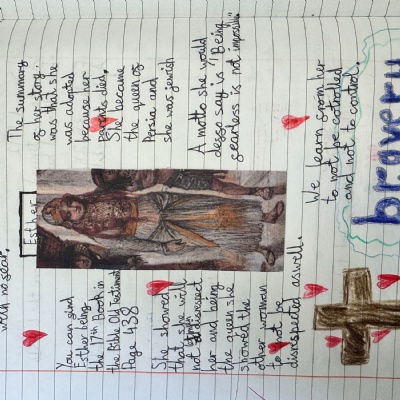 with no fear.
Esther
You can find
Esther being
the 17th Book in
the Bible, Old testament
Page 438
She showed
that she will
not disrespect
her and being
the queen she
showed the
other woman
to not be
disrespected aswell.
The summary
of her story
was that she
was adopted
because her
parents died.
She became
the queen of
Persia and
she was jewish
A motto she would
defo say is "Being
fearless is not impossible".
We learn from her
to not be controlled
and not to control.
bravery